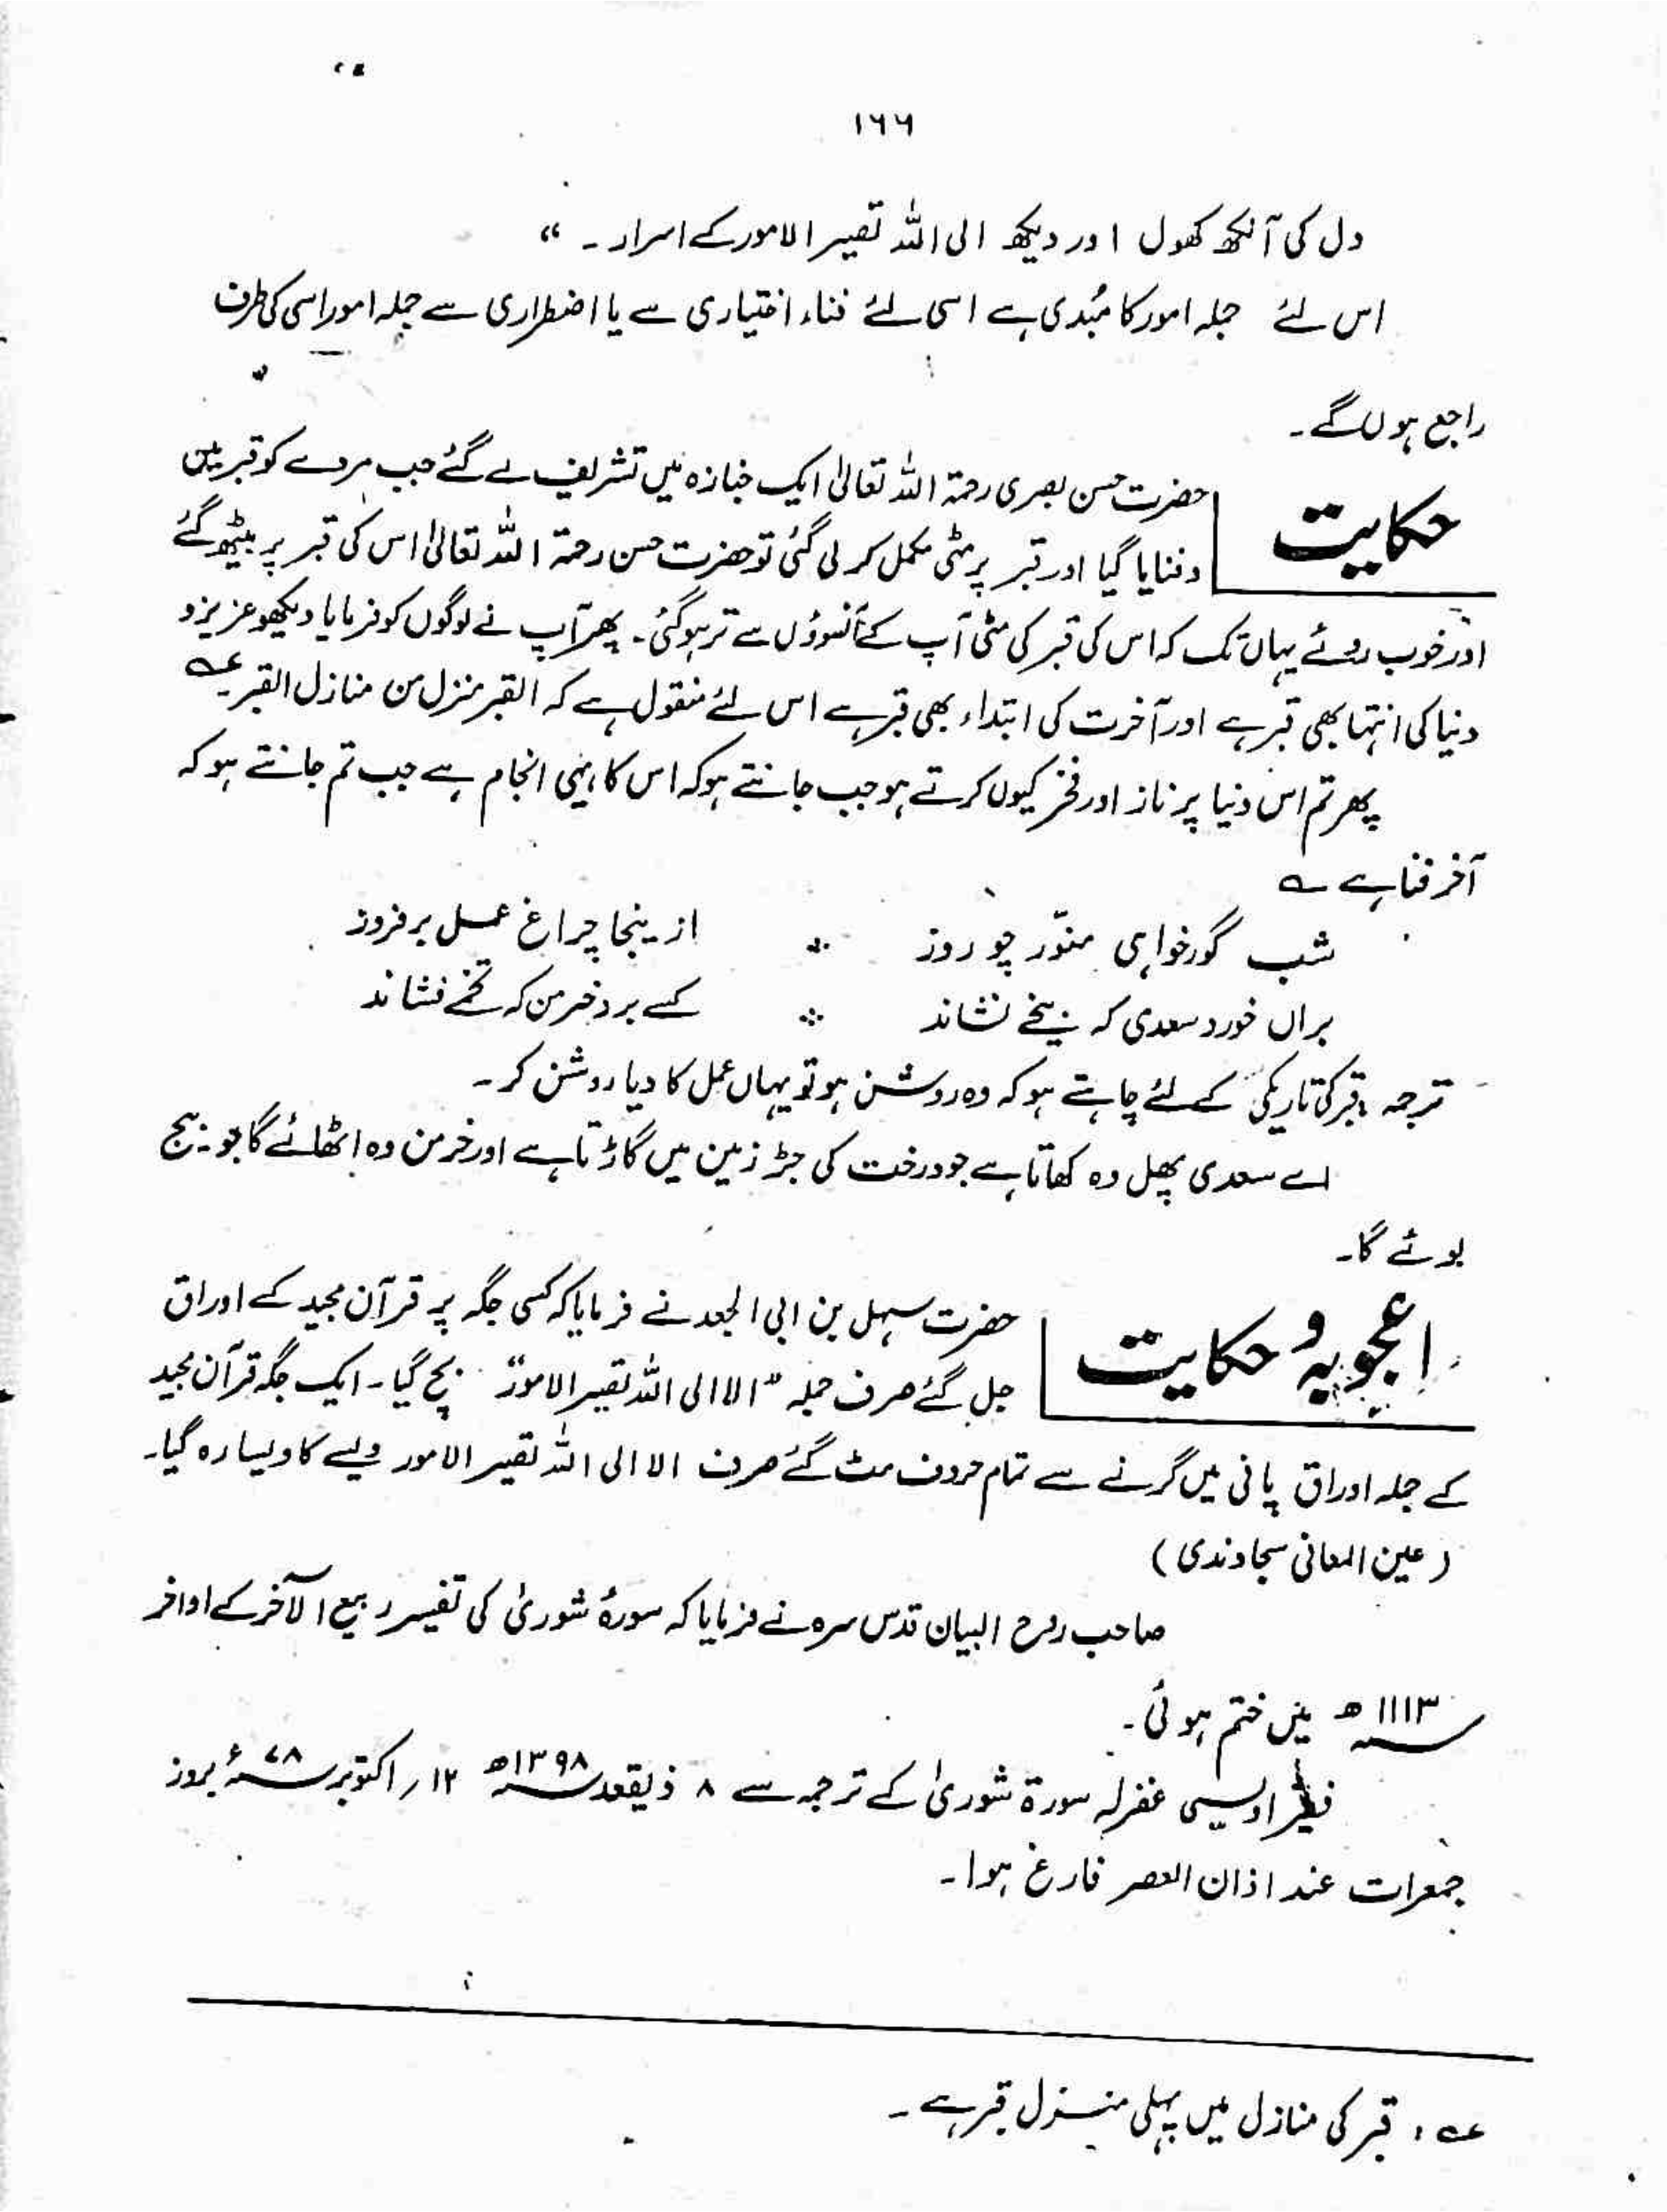 ۱۶۶
دل کی آنکھ کھول اور دیکھ الی اللہ تصیر الامور کے اسرار ۔ “
اس لئے جملہ امور کا مُبدی ہے اسی لئے فناء اختیاری سے یا اضطراری سے جملہ امور اسی کی طرف
راجع ہوں گے۔
حکایت
حضرت حسن بصری رحمۃ اللہ تعالیٰ ایک جنازہ میں تشریف لے گئے جب مردے کو قبر میں
دفنایا گیا اور قبر پر مٹی مکمل کر لی گئی تو حضرت حسن رحمۃ اللہ تعالیٰ اس کی قبر پر بیٹھ گئے
اور خوب روئے یہاں تک کہ اس کی قبر کی مٹی آپ کے آنسوؤں سے تر ہو گئی۔ پھر آپ نے لوگوں کو فرمایا دیکھو عزیزو
دنیا کی انتہا بھی قبر ہے اور آخرت کی ابتداء بھی قبر ہے اس لئے منقول ہے کہ القبر منزل من منازل القبر۔ عہ
پھر تم اس دنیا پر ناز اور فخر کیوں کرتے ہو جب جانتے ہو کہ اس کا یہی انجام ہے جب تم جانتے ہو کہ
آخر فنا ہے ؎
شب گور خواہی منوّر چو روز ؞ ازینجا چراغ عمل بر فروز
براں خورد سعدی کہ بیخے نشاند ؞ کسے برد خرمن کہ تخمے فشاند
ترجمہ : قبر کی تاریکی کے لئے چاہتے ہو کہ وہ روشن ہو تو یہاں عمل کا دیا روشن کر ۔
اے سعدی پھل وہ کھاتا ہے جو درخت کی جڑ زمین میں گاڑتا ہے اور خرمن وہ اٹھائے گا جو بیج
بوئے گا۔
اعجوبہ و حکایت
حضرت سہل بن ابی الجعد نے فرمایا کہ کسی جگہ پر قرآن مجید کے اوراق
جل گئے صرف جملہ ”الا الی اللہ تصیر الامور“ بچ گیا ۔ ایک جگہ قرآن مجید
کے جملہ اوراق پانی میں گرنے سے تمام حروف مٹ گئے صرف الا الی اللہ تصیر الامور ویسے کا ویسا رہ گیا۔
(عین المعانی سجاوندی)
صاحب روح البیان قدس سرہ نے فرمایا کہ سورۂ شوریٰ کی تفسیر ربیع الآخر کے اواخر
سنہ ۱۱۱۳ھ میں ختم ہوئی۔
فقیر اویسی غفرلہ سورۃ شوریٰ کے ترجمہ سے ۸ ذیقعد سنہ ۱۳۹۸ھ ۱۲ / اکتوبر سنہ ۷۸ء بروز
جمعرات عند اذان العصر فارغ ہوا۔
عہ : قبر کی منازل میں پہلی منزل قبر ہے ۔